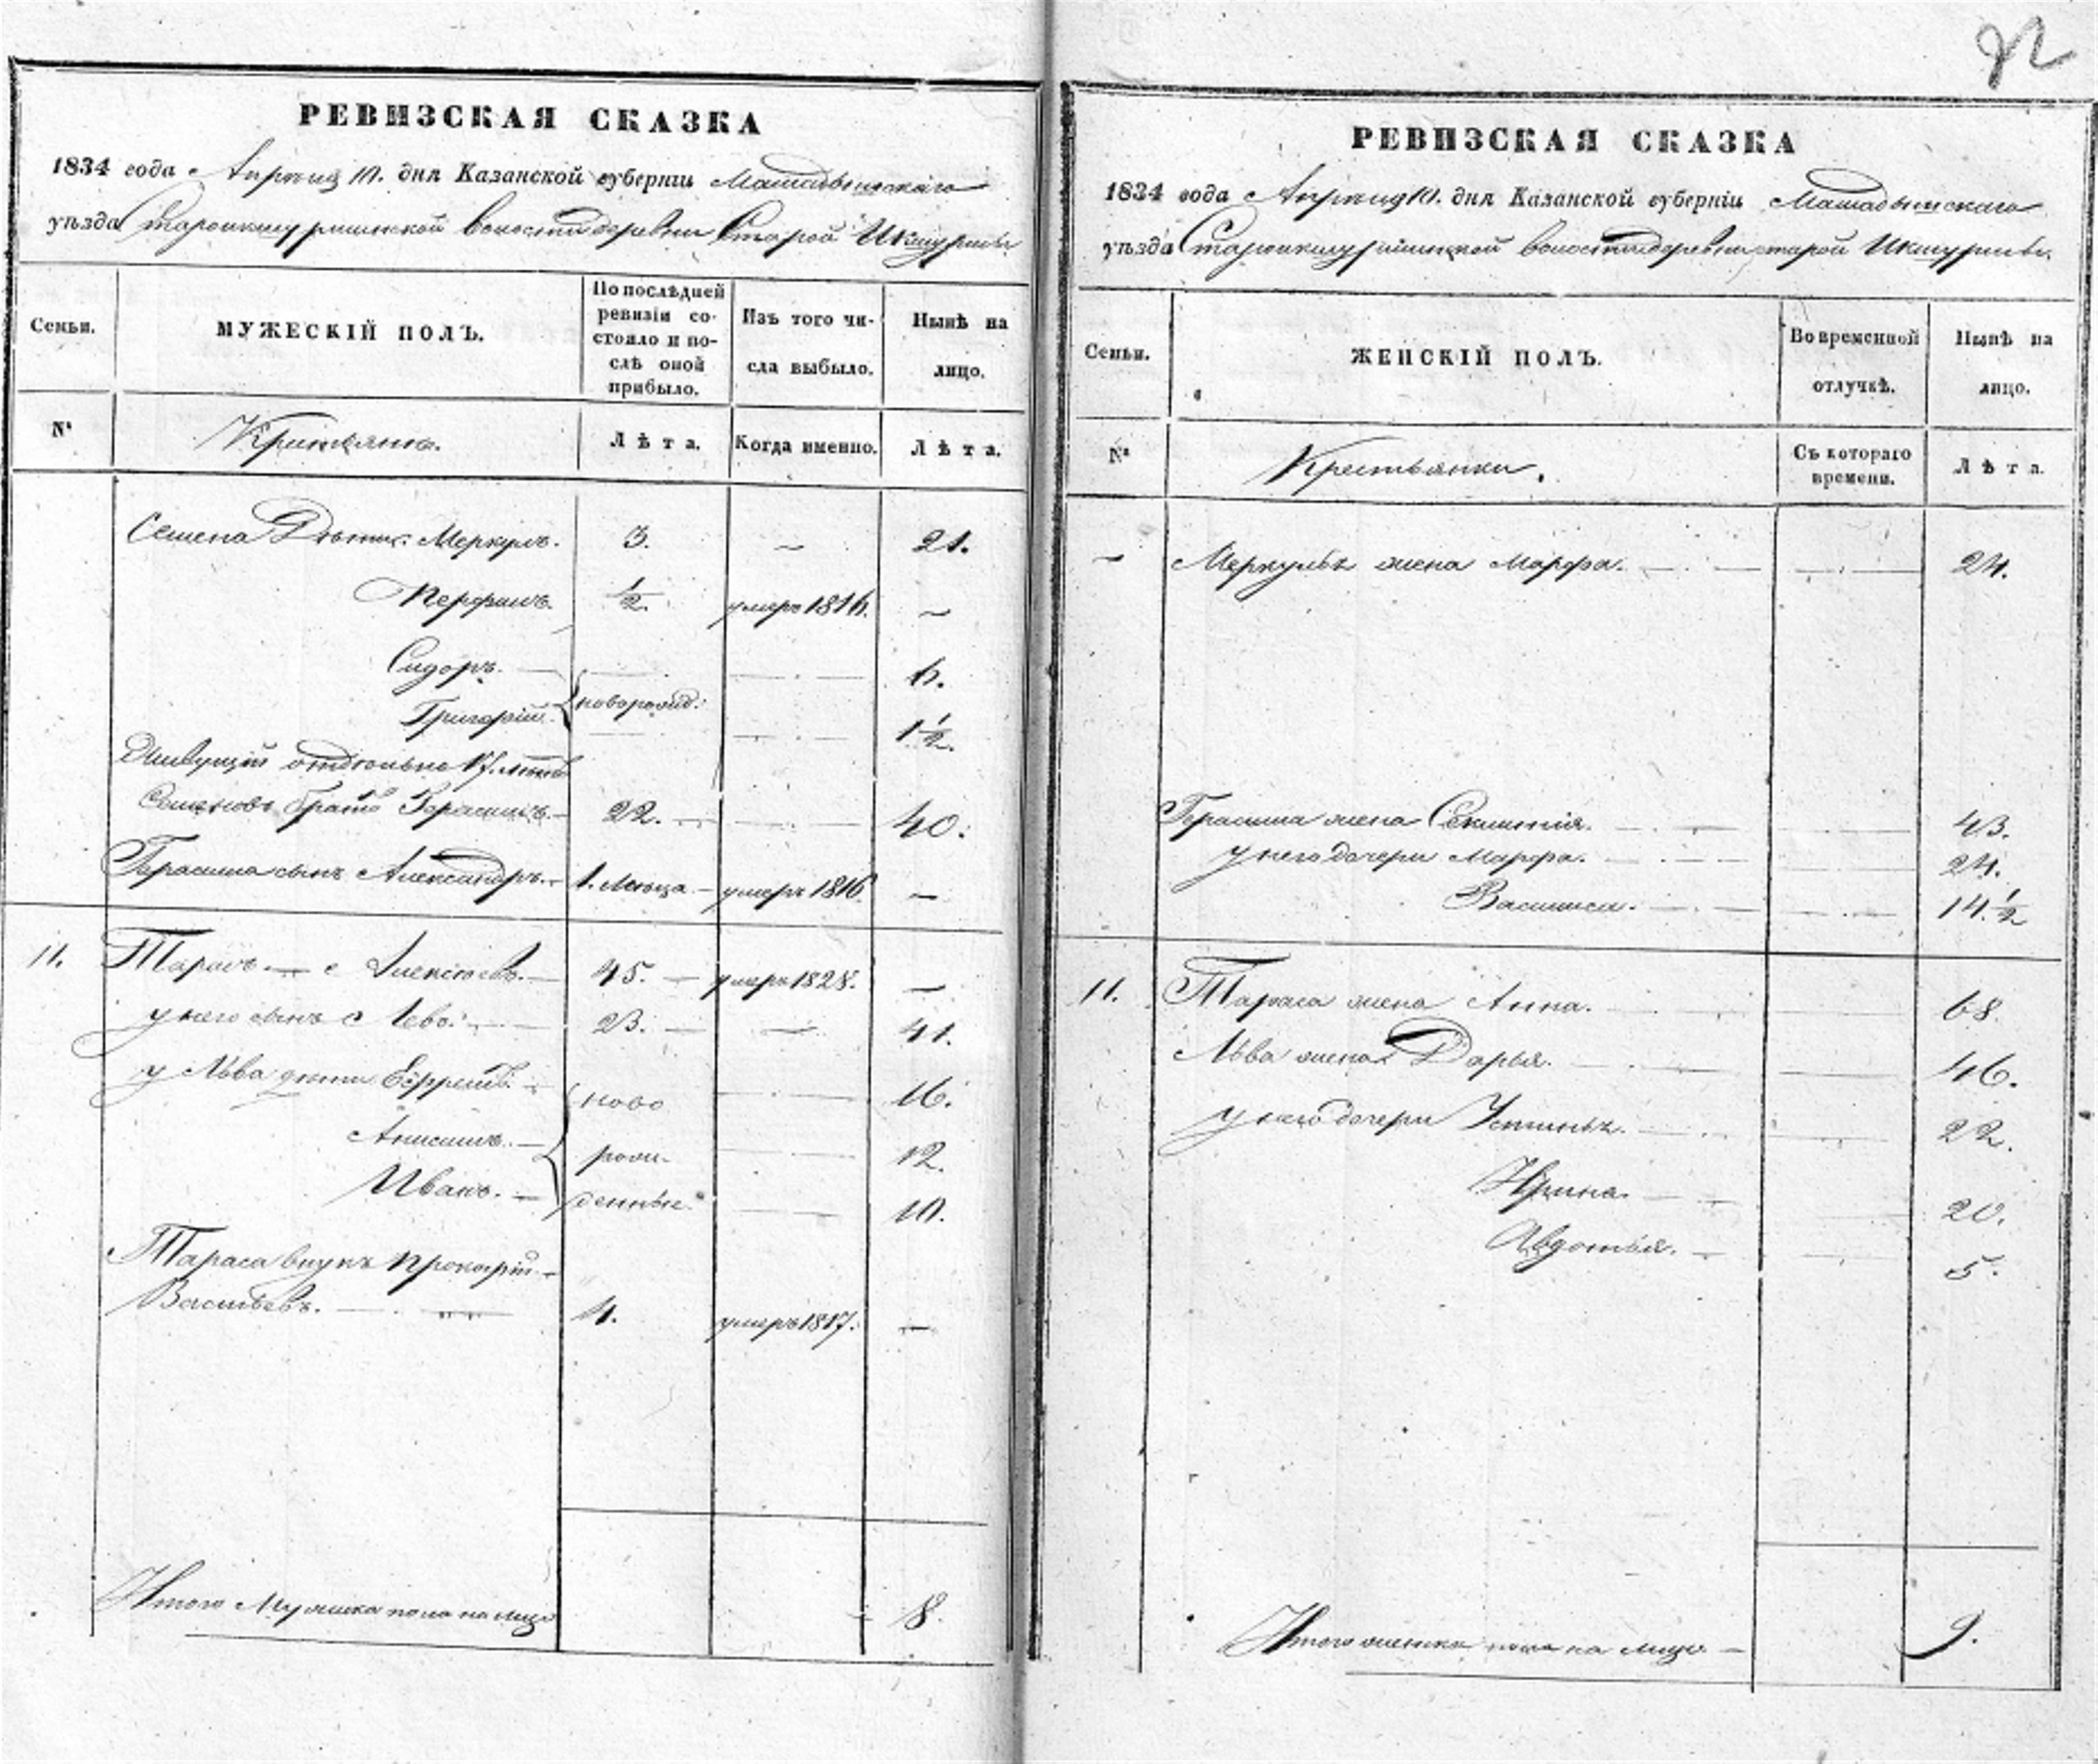 РЕВИЗСКАЯ СКАЗКА
1834 года Апреля 10. дня Казанской губерніи Мамадышскаго
уѣзда Староикшурминской волости деревни Старой Икшурмы
Семьи.
МУЖЕСКІЙ ПОЛЪ.
По послѣдней ревизіи состояло и послѣ оной прибыло.
Изъ того числа выбыло.
Нынѣ на лицо.
№
Крестьяне.
Лѣта.
Когда именно.
Лѣта.
Семена Дѣти: Меркулъ. 3. 21.
Перфилъ. 1/2. умеръ 1816.
Сидоръ. 6.
новорожд:
Григорій. 1 1/2.
Живущій отдѣльно 17. лѣтъ
Семеновъ братъ Герасимъ. 22. 40.
Герасима сынъ Александръ. 1. Месяца умеръ 1816.
11. Тарасъ Алексѣевъ. 45. умеръ 1828.
у него сынъ Левъ. 23. 41.
у Льва дѣти Ефремъ. ново 16.
Анисимъ. рож- 12.
Иванъ. денные 10.
Тараса внукъ Прокофій
Васильевъ. 4. умеръ 1817.
Итого Мужеска пола на лицо 8.
РЕВИЗСКАЯ СКАЗКА
1834 года Апреля 10. дня Казанской губерніи Мамадышскаго
уѣзда Староикшурминской волости деревни старой Икшурмы.
Семьи.
ЖЕНСКІЙ ПОЛЪ.
Во временной отлучкѣ.
Нынѣ на лицо.
№
Крестьянки.
Съ котораго времени.
Лѣта.
Меркулъ жена Марфа. 24.
Герасима жена 43.
у него дочери Марфа. 24.
Василиса. 14 1/2
11. Тараса жена Анна. 68.
Льва жена Дарья. 46.
у него дочери Устинья. 22.
Ирина. 20.
Авдотья. 5.
Итого женска пола на лицо 9.